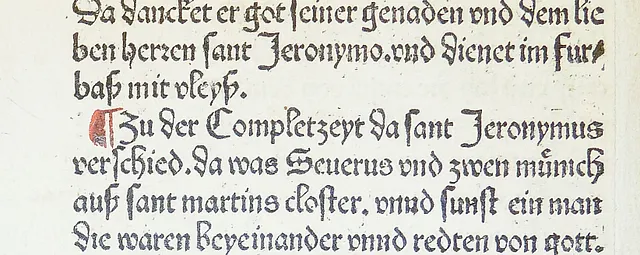 Da dancket er got seiner genaden vnd dem lie
ben herren sant Jeronymo.vnd dienet im fur⸗
baß mit vleyß.
¶ Zu der Completzeyt da sant Jeronymus
verschied.da was Seuerus vnd zwen münich
auß sant martins closter. vnnd sunst ein man
die waren beyeinander vnnd redten von gott.